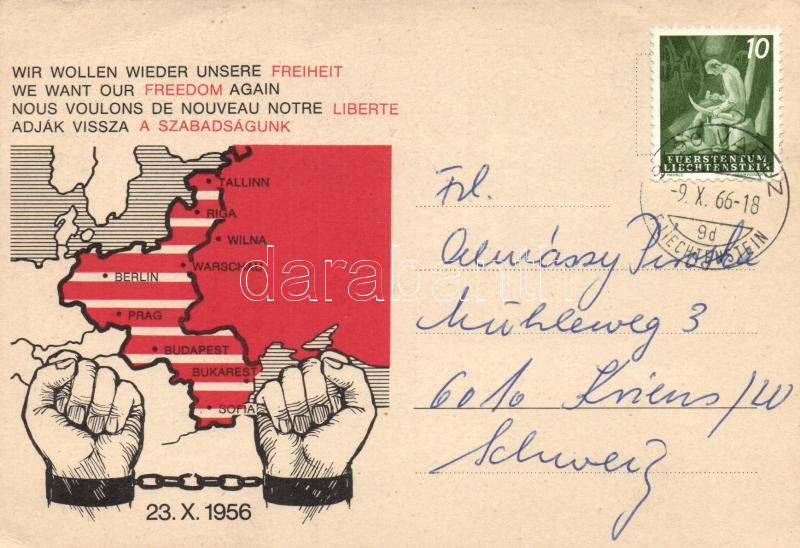 WIR WOLLEN WIEDER UNSERE FREIHEIT
WE WANT OUR FREEDOM AGAIN
NOUS VOULONS DE NOUVEAU NOTRE LIBERTE
ADJÁK VISSZA A SZABADSÁGUNK
TALLINN
RIGA
WILNA
WARSCHAU
BERLIN
PRAG
BUDAPEST
BUKAREST
SOFIA
23. X. 1956
10
FUERSTENTUM
LIECHTENSTEIN
VADUZ
-9. X. 66-18
9d
LIECHTENSTEIN
Frl.
Almássy Piroska
Mühleweg 3
6010 Kriens/LU
Schweiz
darabanth